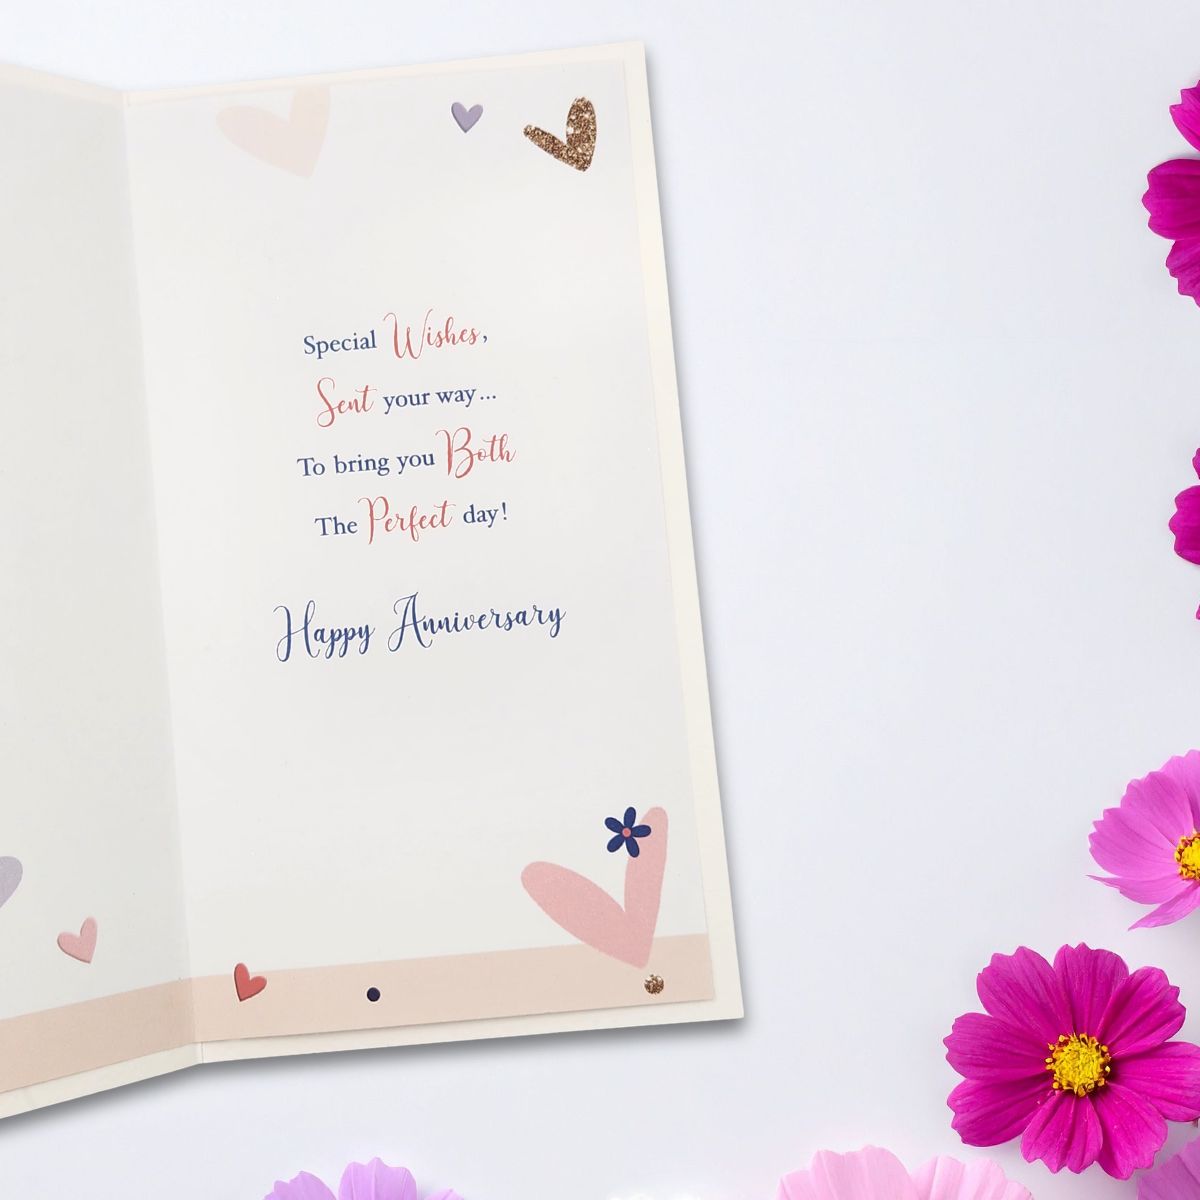 Special Wishes,
Sent your way...
To bring you Both
The Perfect day!
Happy Anniversary